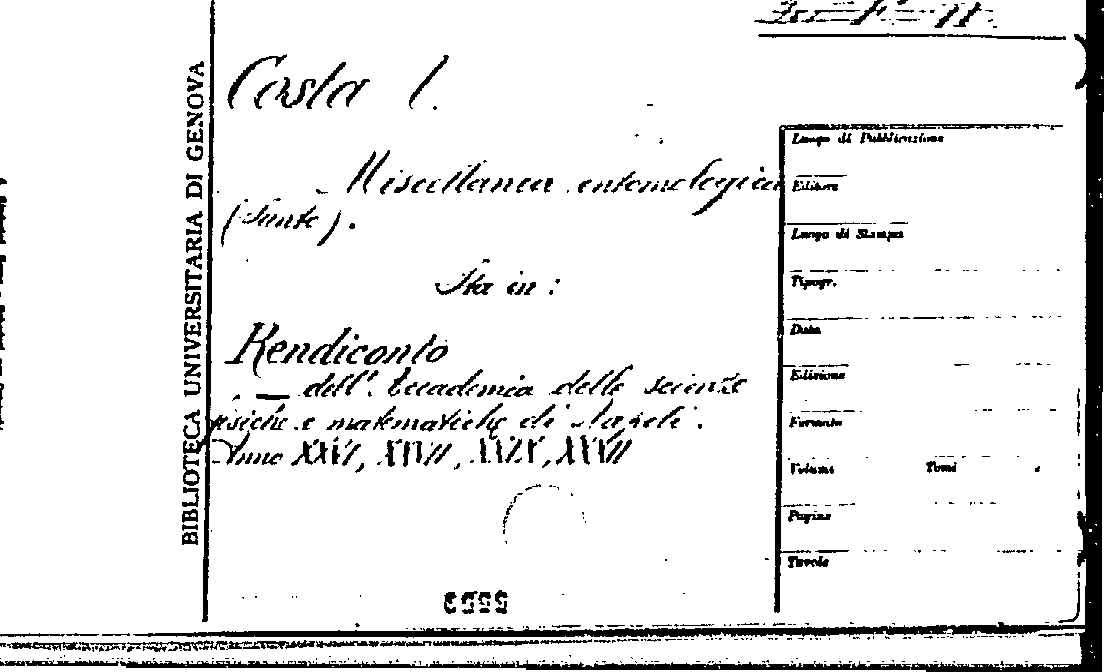 BIBLIOTECA UNIVERSITARIA DI GENOVA
Costa
Miscellanea entomologica
(Sunto).
Sta in:
Rendiconto
— dell' Accademia delle scienze
fisiche e matematiche di Napoli.
Anno XXVI,
Luogo di Pubblicazione
Editore
Luogo di Stampa
Tipogr.
Data
Edizione
Formato
Volume Tomi
Pagine
Tavole